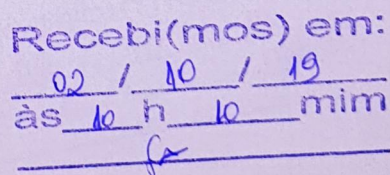 Recebi(mos) em:
02 / 10 / 19
às 10 h 10 mim